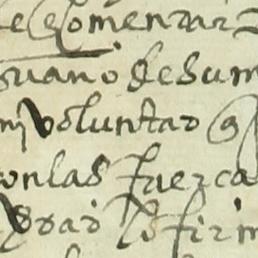 de Comentar
su año de sum
mi voluntad q
con las fuerça
drad lo firm